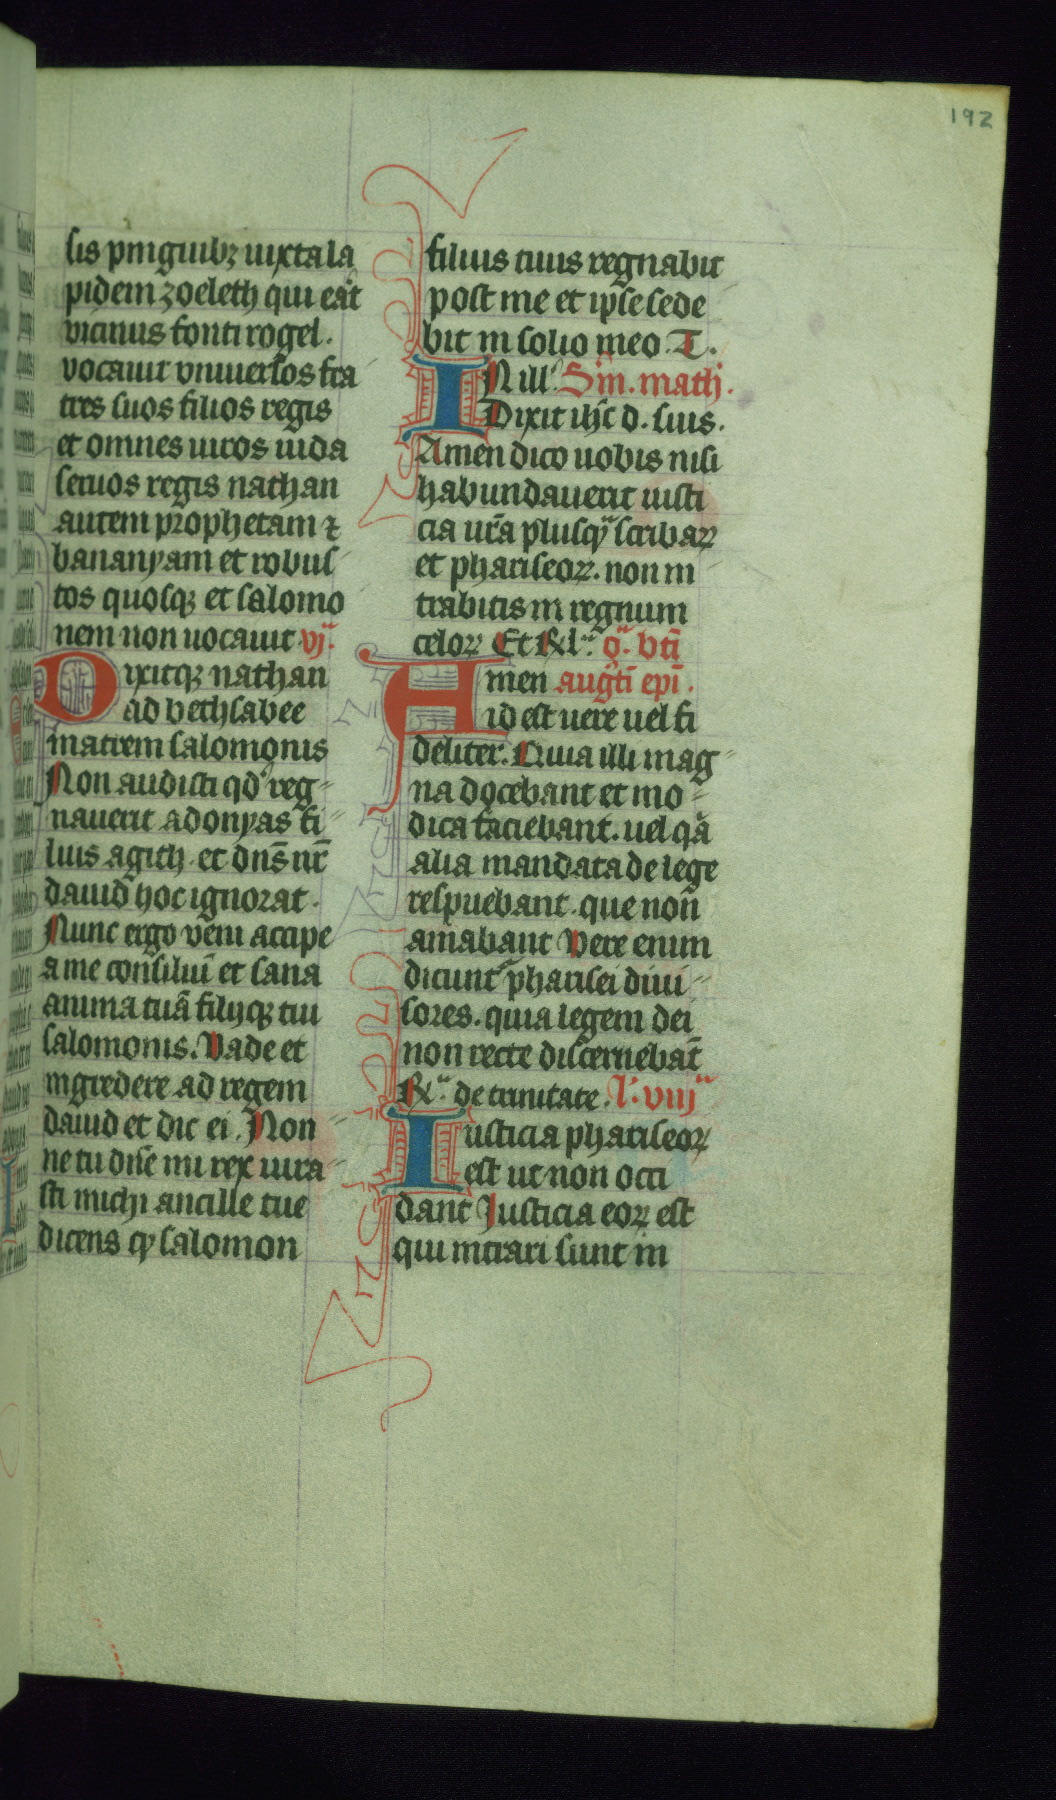 192
sis pinguibꝫ iuxta la
pidem zoeleth qui erat
vicinus fonti rogel.
vocauit vniuersos fra
tres suos filios regis
et omnes uiros iuda
seruos regis nathan
autem prophetam ⁊
bananyam et robus
tos quosqꝫ et salomo
nem non uocauit vjᵃ.
Dixitqꝫ nathan
ad bethsabee
matrem salomonis
Non audisti qd' reg
nauerit adonyas fi
lius agith. et dn̄s nr̄
dauid hoc ignorat.
Nunc ergo veni accipe
a me consiliū et salua
anima tuā filijqꝫ tui
salomonis. Vade et
ingredere ad regem
dauid et dic ei. Non
ne tu dn̄e mi rex iura
sti michi ancille tue
dicens qꝫ salomon
filius tuus regnabit
post me et ipse sede
bit in solio meo. T.
IN ill'. Sm̄. math'.
Dixit ih̄c d. suis.
Amen dico uobis nisi
habundauerit iusti
cia ur̄a plusqᵃ scribaꝝ
et phariseoꝝ. non in
trabitis in regnum
celoꝝ Et Rl'ᵃ oᵃ. bt̄i
Amen aug't̄i ep̄i.
id est uere uel fi
deliter. Quia illi mag
na docebant et mo
dica faciebant. uel qᵃ
alia mandata de lege
respuebant. que non
amabant Vere enim
dicunt' pharisei diui
sores. quia legem dei
non recte discernebāt
Rᵃ. de trinitate. l'. viijᵃ
Iusticia phariseoꝝ
est ut non occi
dant Iusticia eoꝝ est
qui intrari sunt in